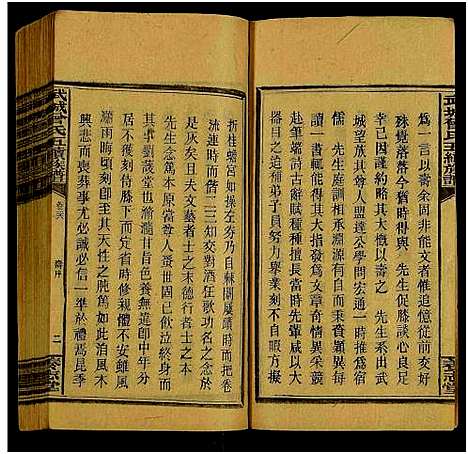 武城曾氏五續族譜
為一言以壽余固非能文者惟追憶從前交好
殊覺憲今猶時得與 先生促膝談心
幸已因謹約略其大概以壽之 先生系出武
城望族其尊人盟達公學問宏通一時推為宿
儒 先生庭訓相承淵源有自而秉資穎異每
讀一書輒能得其大指發為文章奇情異采競
赴筆端詩古辭賦種種擅長當時長老咸以大
器目之諸弟子員努力舉業刻不自暇方擬
折桂蟾宮如操左券乃自棘闈屢躓時而把卷
流連時而偕二三知交對酒狂歌功名之念於
是灰矣且夫文藝者士之末德行者士之本
先生念篤本原當尊人蚤世固已飲泣終身而
其事劉諼堂也滫瀡甘旨色養無違即中年分
居不獲刻侍膝下而定省時修親體不安雖風
瀟雨晦頃刻即至其天性之肫篤如此洎風木
興悲而喪葬事尤必誠必信一準於禮焉昆季
武城曾氏五續族譜
卷六
壽序
二